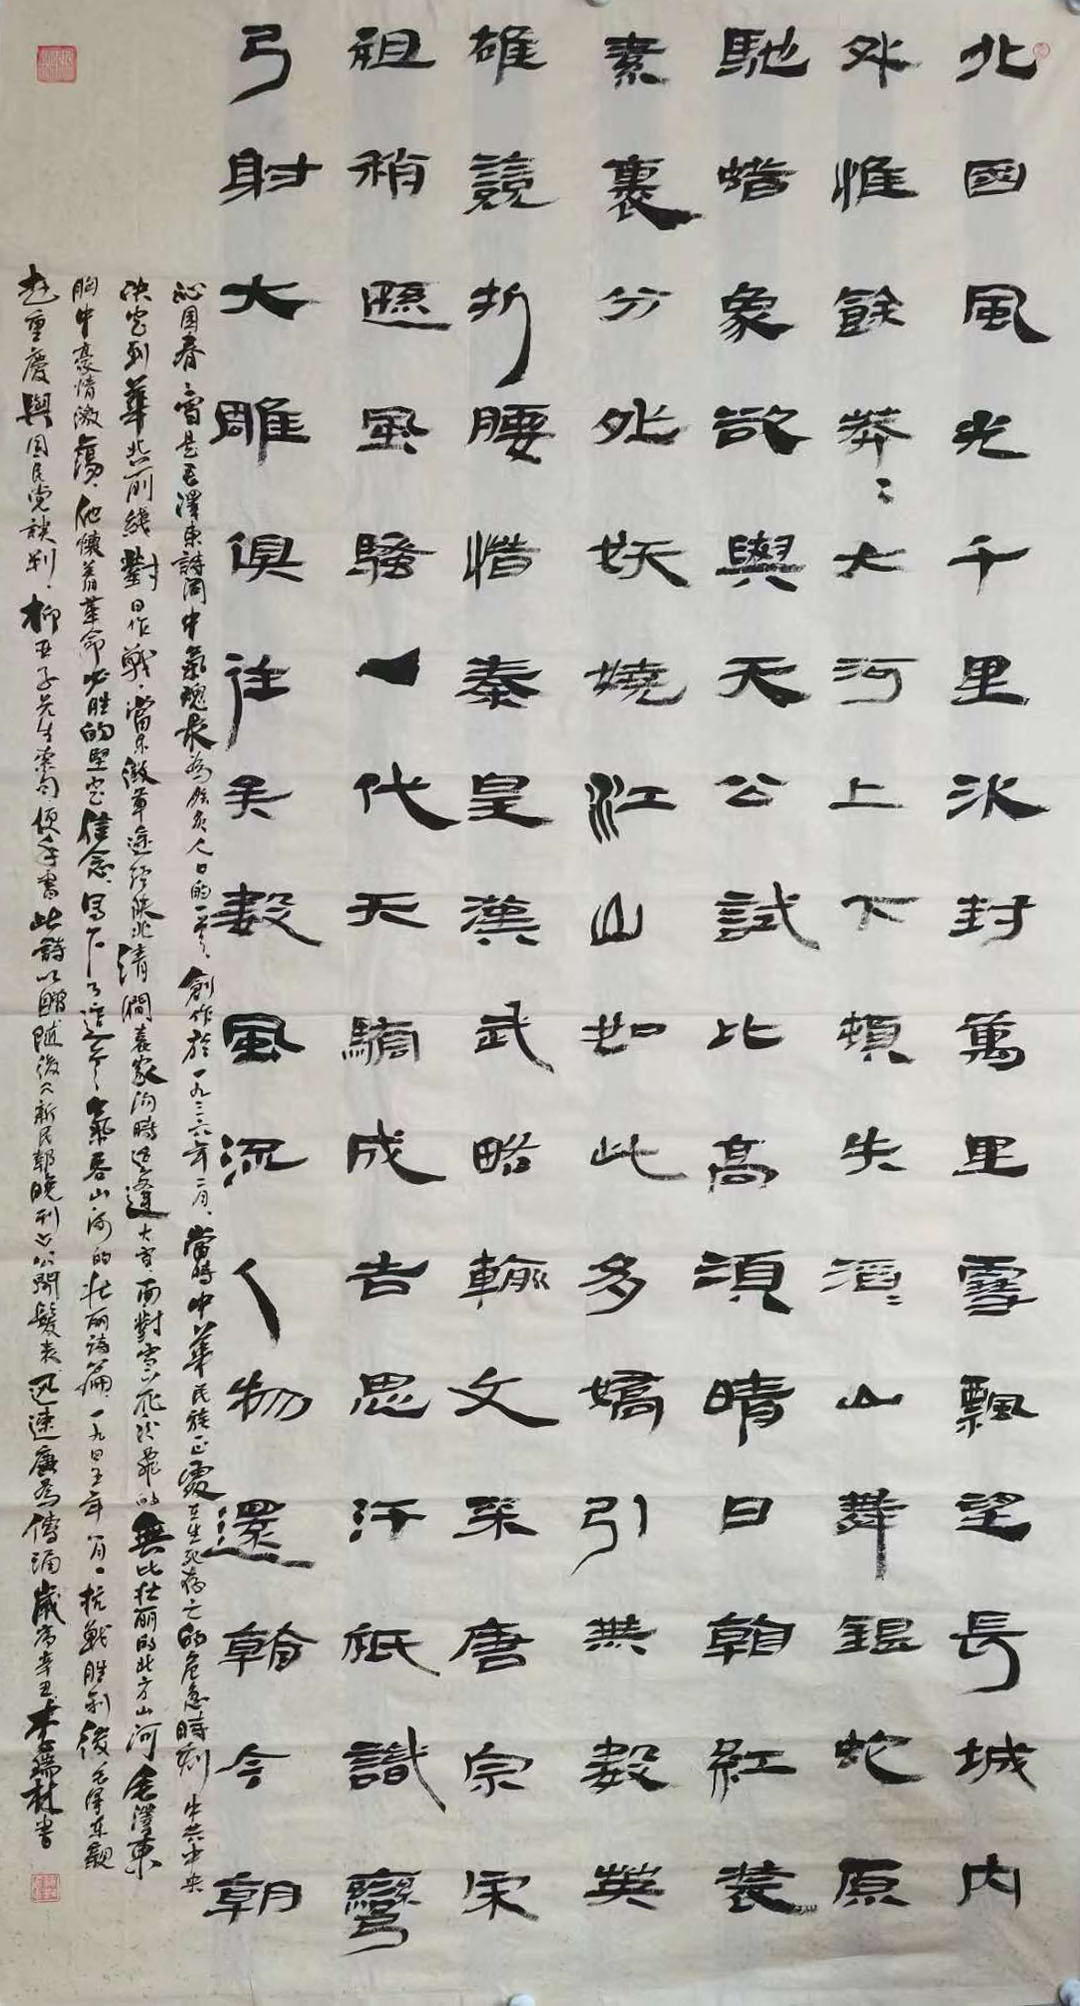 北國風光千里冰封萬里雪飄望長城内
外惟餘莽〻大河上下頓失滔〻山舞銀蛇原
馳蜡象欲與天公試比高須晴日看紅裝
素裹分外妖嬈江山如此多嬌引無數英
雄競折腰惜秦皇漢武略輸文采唐宗宋
祖稍遜風騷一代天驕成吉思汗祇識彎
弓射大雕俱往矣數風流人物還看今朝
沁園春雪是毛澤東詩詞中氣魄最為膾炙人口的一首創作於一九三六年二月當時中華民族正處在生死存亡的危急時刻中共中央
決定到華北前綫對日作戰當東征軍途經陝北清澗袁家溝時適逢大雪面對雪花的無比壯麗的北方山河毛澤東
胸中豪情激蕩他懷着革命必勝的堅定信念寫下了這首氣吞山河的壯麗詩篇一九四五年八月抗戰勝利後毛澤東親
赴重慶與国民党談判柳亞子先生索句便手書此詩以贈隨後《新民報晚刊》公開髮表迅速廣為傳誦歲次辛丑李瑞林書